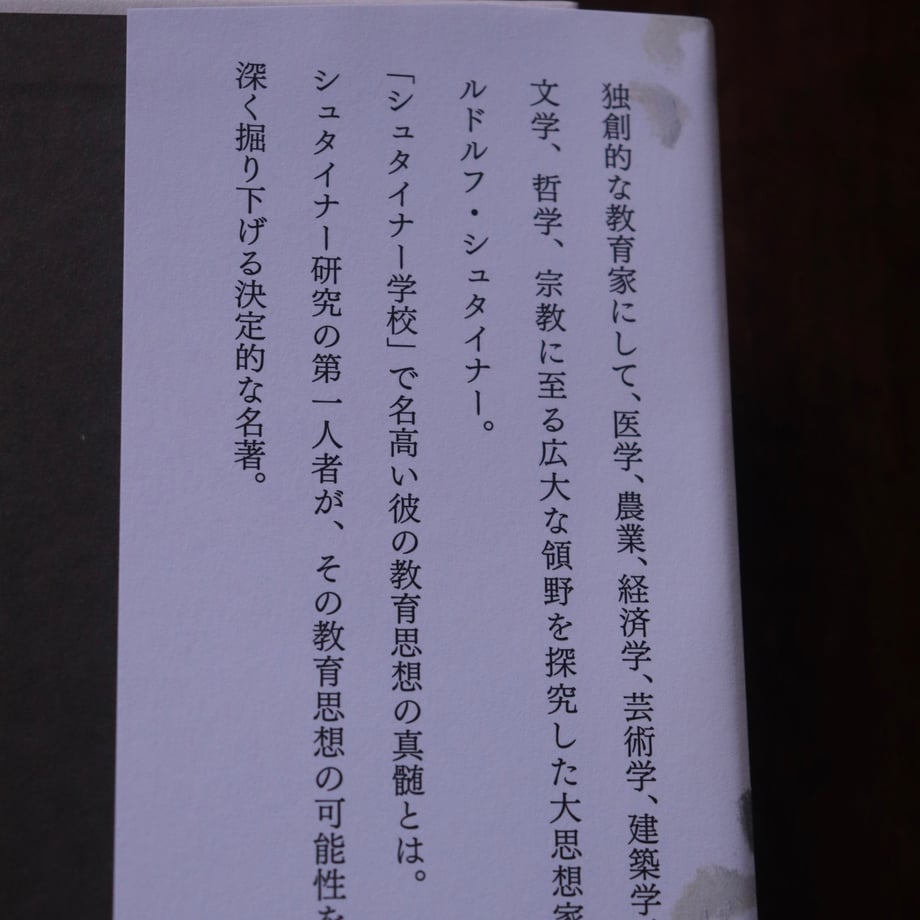 独創的な教育家にして、医学、農業、経済学、芸術学、建築学、
文学、哲学、宗教に至る広大な領野を探究した大思想家
ルドルフ・シュタイナー。
「シュタイナー学校」で名高い彼の教育思想の真髄とは。
シュタイナー研究の第一人者が、その教育思想の可能性を
深く掘り下げる決定的な名著。